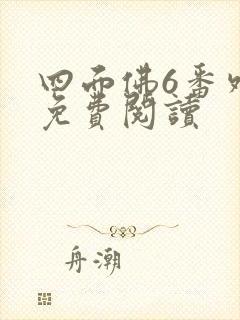 四面佛6番
免費閱讀
舟潮